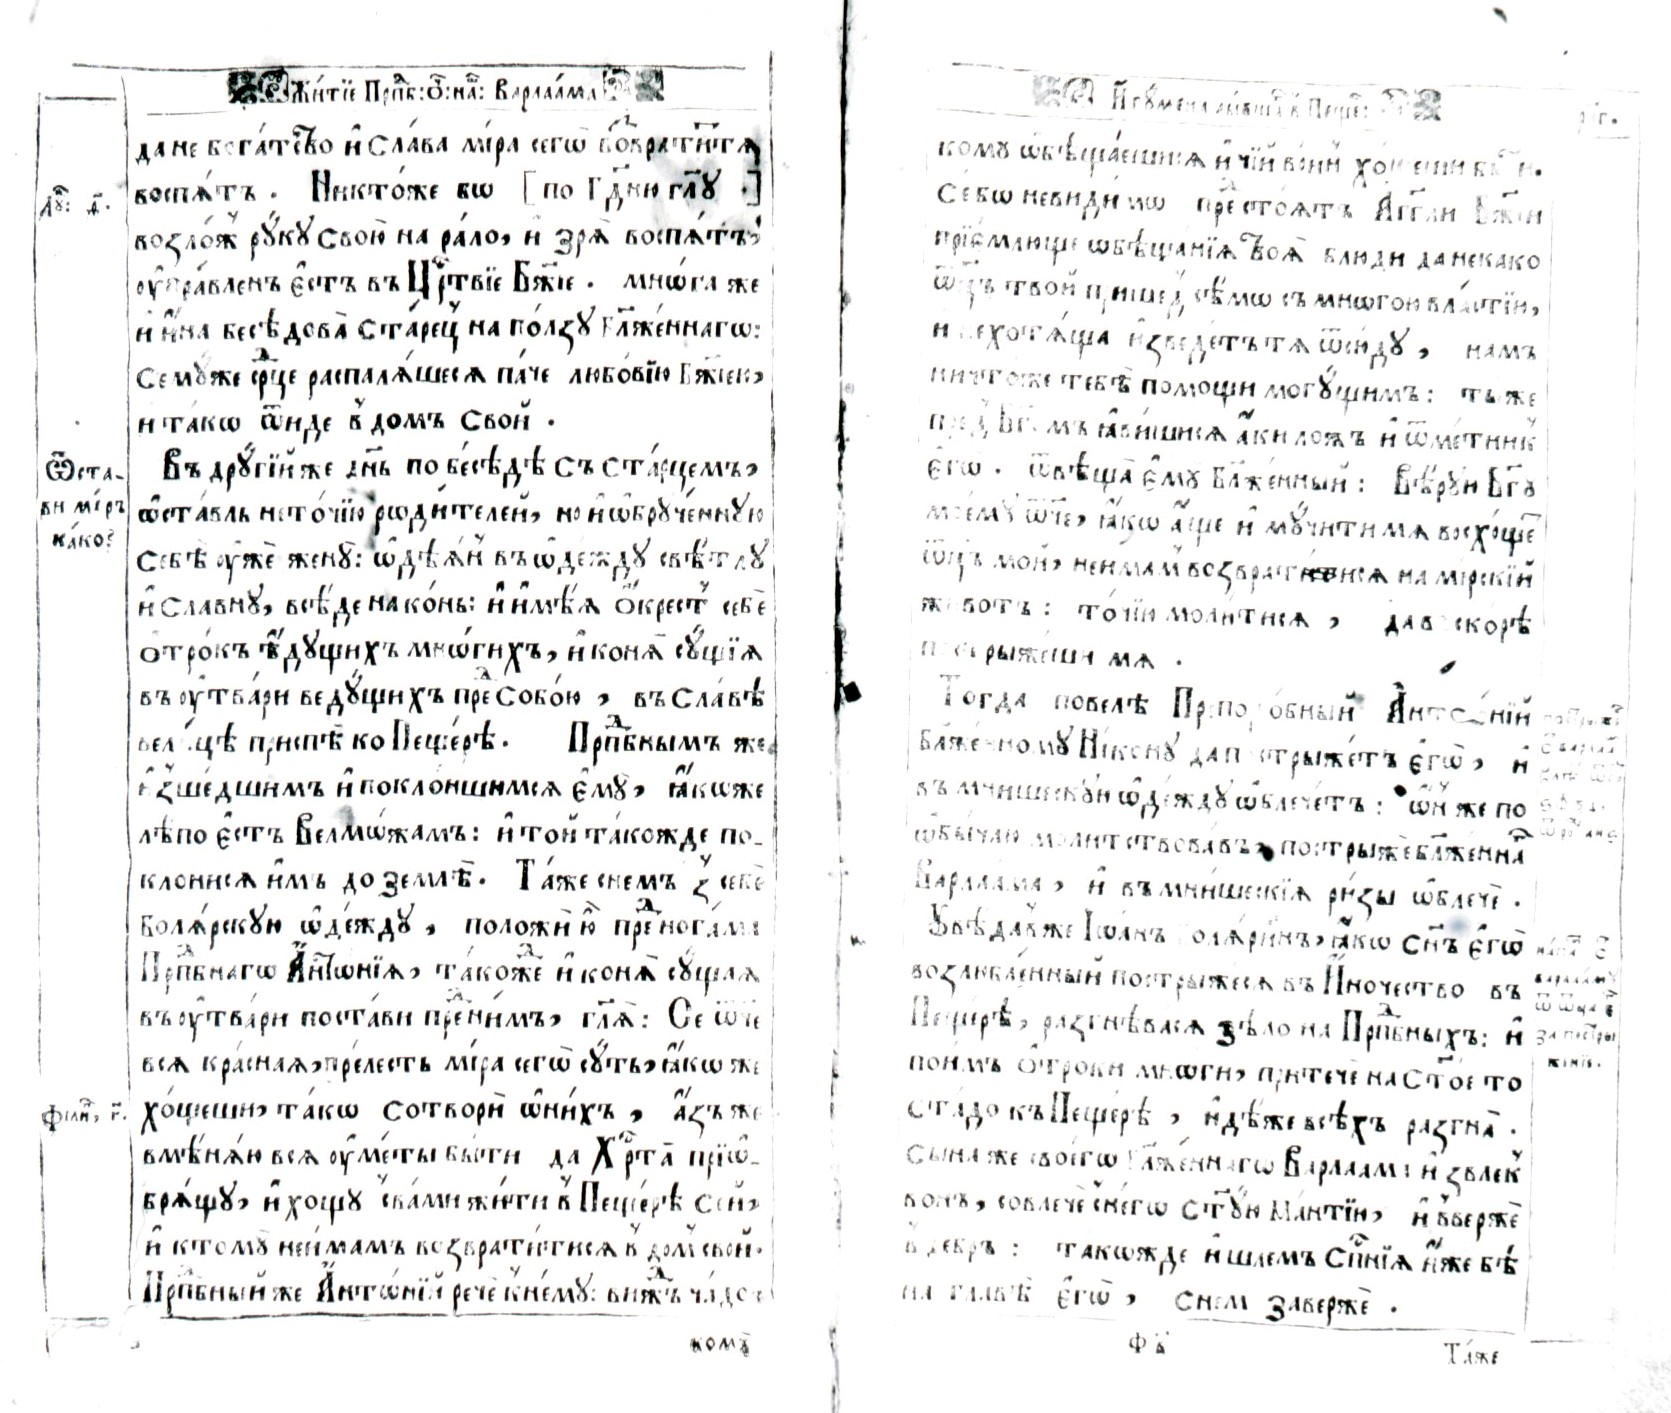 Житїе Прпб: Ѻ: на: Варлаама
да не богатство и слава мїра сегѡ возвратитъ тя
воспять . Никтоже бо [по Гдню глу]
возложъ руку свою на рало, и зря воспять,
оуправленъ есть въ Црствїе Бжїе . мнѡга же
и ина беседова старец на ползу Блаженнагѡ:
Семуже срце распаляшеся паче любовїю Бжїею,
и такѡ ѿиде в домъ свой .
Въ другїй же днь по беседѣ съ старцемъ,
ѡставль не точїю родителей, но и ѡбрученную
Себѣ оуже жену: ѡдеян въ ѡдежду светлу
и славну, всѣде на конь: и имѣя окрест себе
отрокъ ѣдущихъ мнѡгихъ, и коня сущїя
въ оутвари ведущихъ пред собою , въ славѣ
велицѣ приспѣ ко Пещерѣ . Прпбнымъ же
изшедшимъ и поклоншимся ему, якоже
лѣпо есть Велмѡжамъ: и той такожде по-
клонися имъ до землѣ . Таже снемъ з себе
Болярскую ѡдежду , положи ю пред ногама
Прпбнагѡ Антѡнїя, такоже и коня сущая
въ оутвари постави пред нимъ, гля: Се ѿче
вся красная, прелесть мїра сегѡ суть, якѡ же
хощеши, такѡ сотвори ѡ нихъ , азъ же
вмѣняю вся оуметы быти да Хрта прїѡ-
брящу, и хощу с вами жити в Пещерѣ сей,
и к тому не имамъ возвратитися в дом свой.
Прпбный же Антѡнїй рече к нему: виждъ чадо
кому
Ѿста-
ви мїръ
како?
Филип, г.
Игумена бывша в Пеще:
кому ѡбѣщаешися и чїй воин хощеши быти.
Се бо невидимо предстоятъ Агглы Бжїи
прїемлюще ѡбѣщанїя твоя блюди да некако
ѿцъ твой пришед сѣмо съ мнѡгою властїю,
и не хотяща изведетъ тя ѿсюду , намъ
ничтоже тебѣ помощи могущимъ: ты же
пред Бгомъ явишися аки лож и ѿметник
егѡ . ѿвѣща ему Блаженный: Вѣруй Бгу
моему ѿче, якѡ аще и мучити мя восхощет
ѿцъ мой, не имам возвратитися на мїрскїй
животъ: точїю молитися , да вскорѣ
пострыжеши мя .
Тогда повелѣ Преподобный Антѡнїй
блаженному Никону да пострыжетъ егѡ , и
въ мнишескую ѡдежду ѡблечетъ: ѡн же по
ѡбычаю молитствовавъ, пострыже блаженна
Варлаама , и въ мнишескїя ризы ѡблече .
Увѣдав же Іѡанъ Боляринъ, якѡ снъ егѡ
возлюбленный пострыжеся въ Иночество въ
Пещерѣ, разгнѣвася зѣло на Прпбныхъ: и
поимъ отроки мнѡги, притече на стое то
стадо къ Пещерѣ , идѣже всѣхъ разгна .
Сына же своегѡ Блаженнагѡ Варлаама извлек
вонъ, совлече с негѡ стую мантїю, и вверже
в дебръ : такѡжде и шлемъ спнїя иже бѣ
на главѣ егѡ , снем заверже .
Ф в
Таже
за постры
женїе.